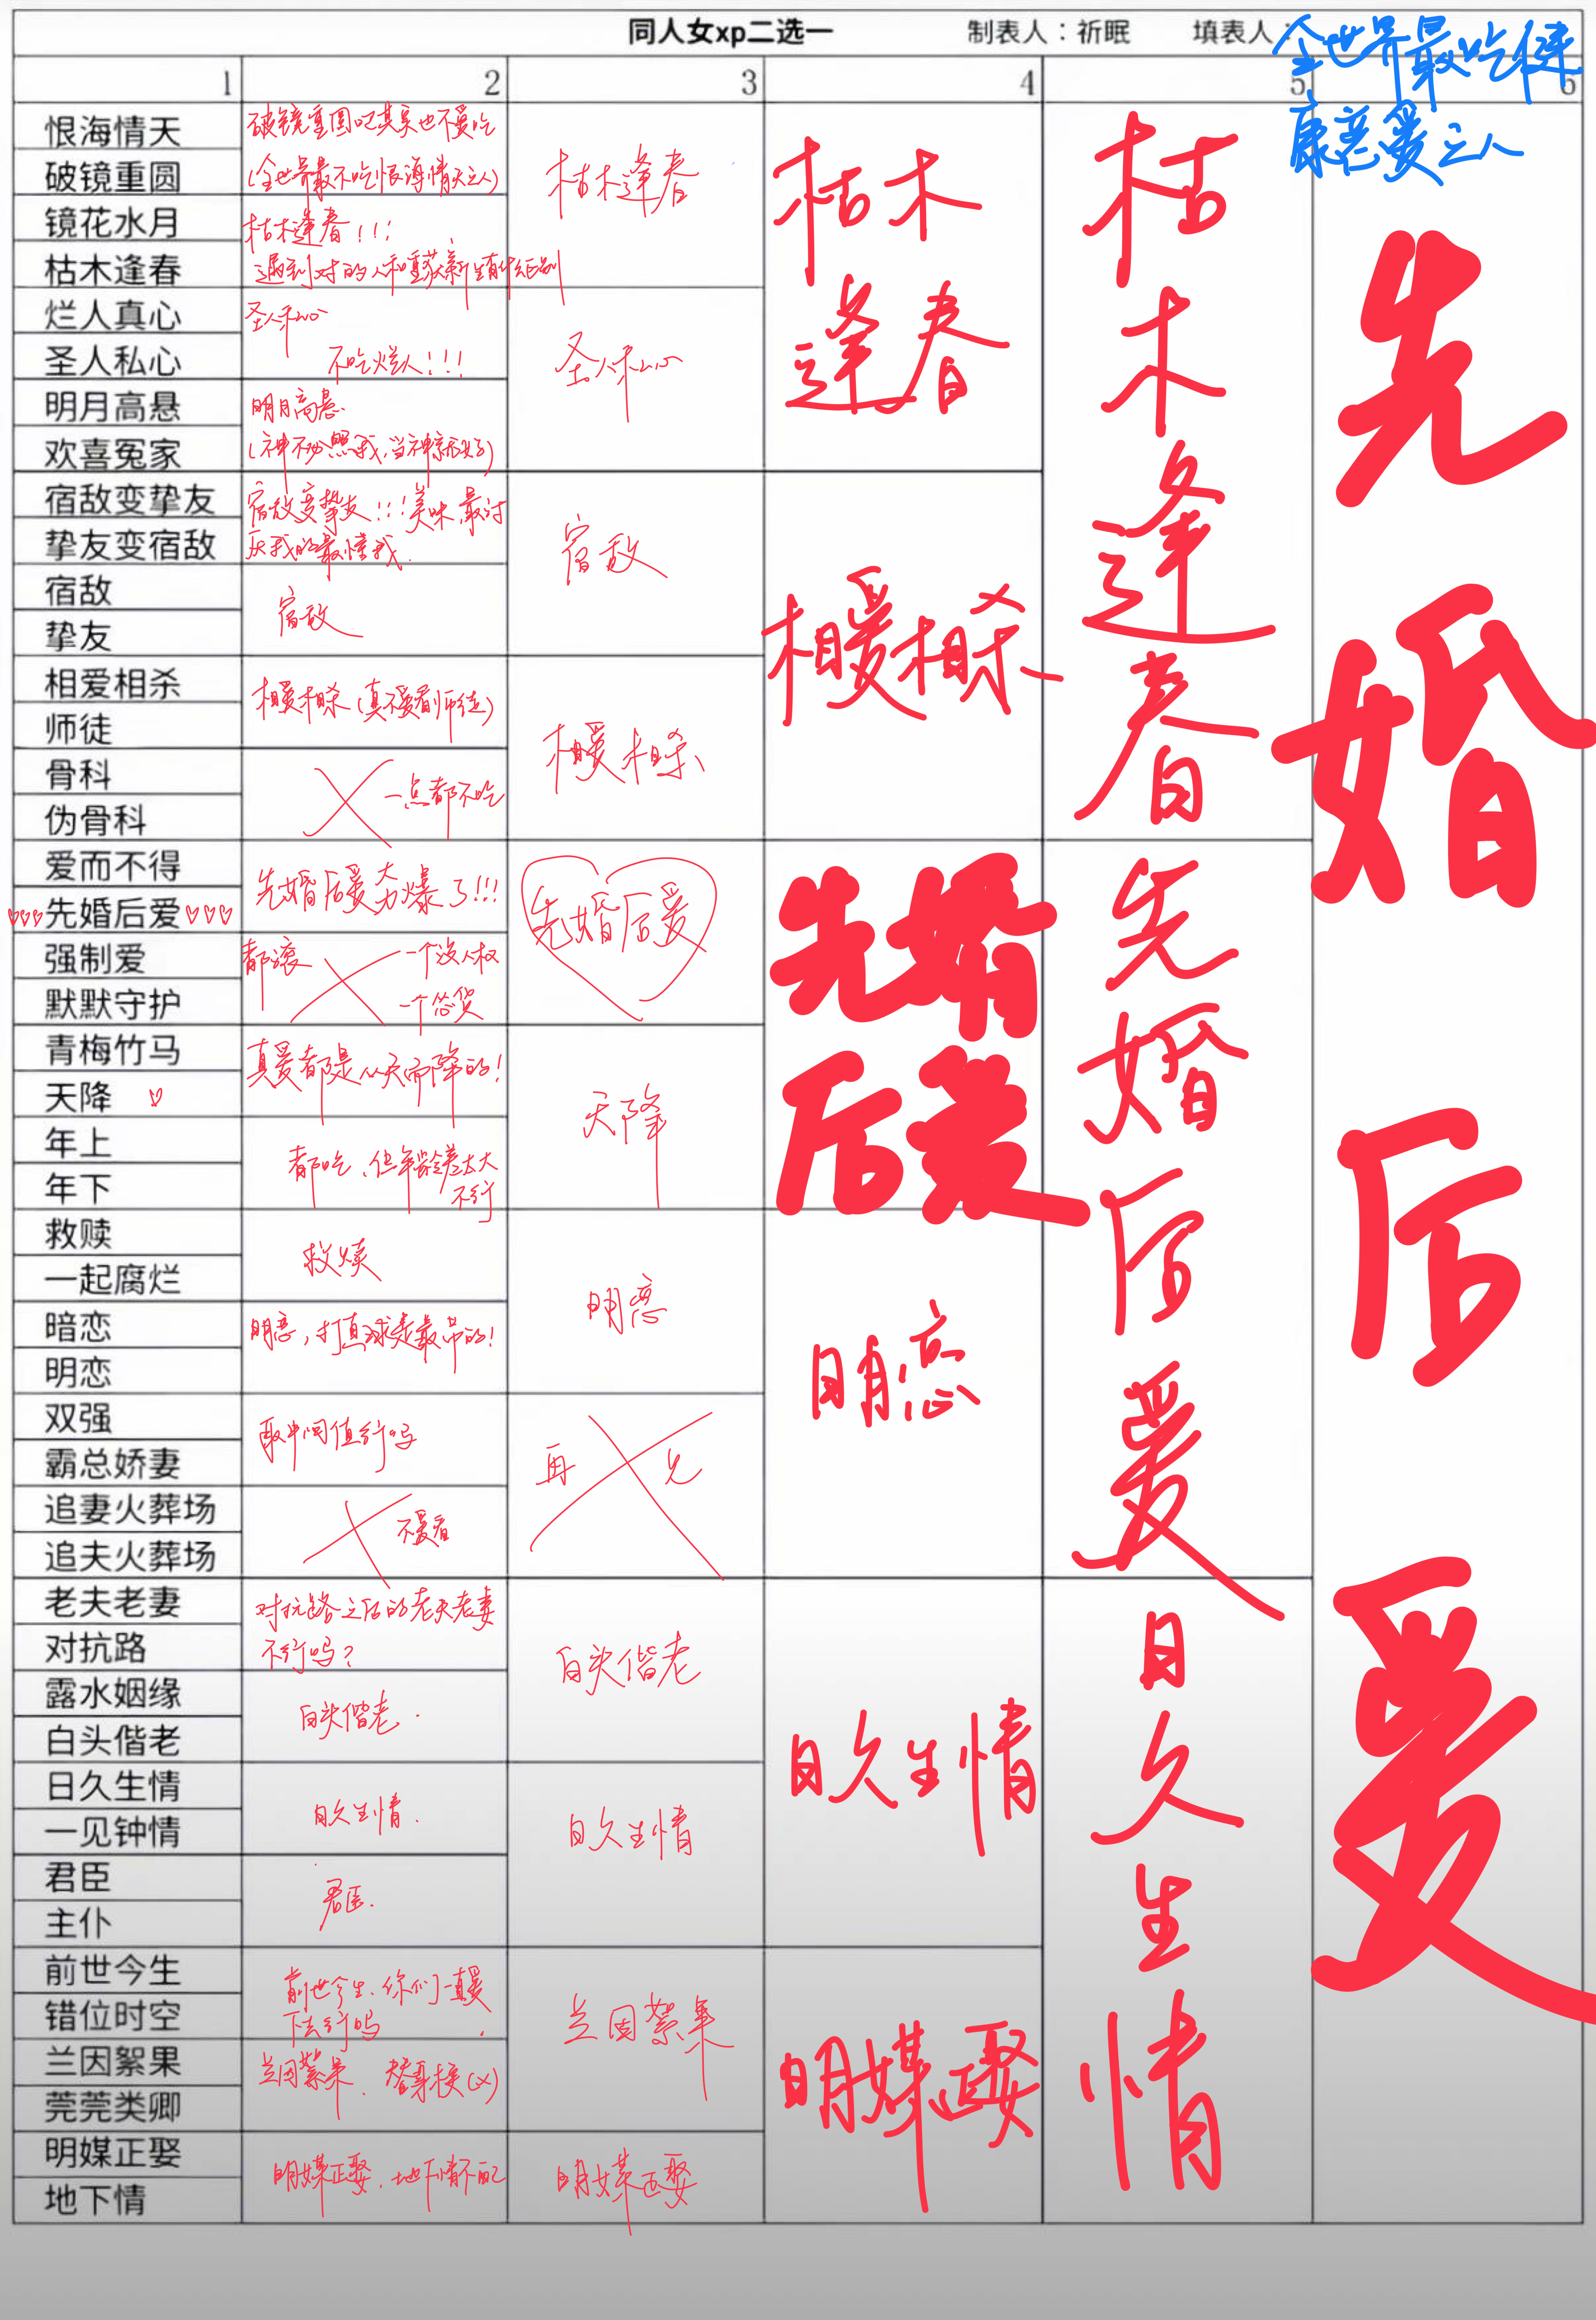 同人女xp二选一 制表人：祈眠 填表人：
全世界最吃健
康恋爱之人
1 2 3 4 5 6
恨海情天
破镜重圆
镜花水月
枯木逢春
烂人真心
圣人私心
明月高悬
欢喜冤家
宿敌变挚友
挚友变宿敌
宿敌
挚友
相爱相杀
师徒
骨科
伪骨科
爱而不得
先婚后爱
强制爱
默默守护
青梅竹马
天降
年上
年下
救赎
一起腐烂
暗恋
明恋
双强
霸总娇妻
追妻火葬场
追夫火葬场
老夫老妻
对抗路
露水姻缘
白头偕老
日久生情
一见钟情
君臣
主仆
前世今生
错位时空
兰因絮果
莞莞类卿
明媒正娶
地下情
破镜重圆吧其实也不爱吃
(全世界最不吃恨海情天之人)
枯木逢春!!!
遇到对的人和重获新生有什么区别
圣人私心
不吃烂人!!!
明月高悬
(神不必照我,当神就好了)
宿敌变挚友!!!美味,最讨
厌我的最懂我.
宿敌
相爱相杀(真不爱看师徒)
一点都不吃
先婚后爱大力爆了!!!
都滚
一个没人权
一个怂货
真爱都是从天而降的!
都吃、但年龄差太大
不行
救赎
明恋,打直球是最吊的!
取中间值行吗
不爱看
对抗路之后的老夫老妻
不行吗?
白头偕老.
日久生情.
君臣.
前世今生.你们一直爱
下去行吗
兰因絮果、替身拒(x)
明媒正娶.地下情不配
枯木逢春
圣人私心
宿敌
相爱相杀
先婚后爱
天降
明恋
再
见
白头偕老
日久生情
兰因絮果
明媒正娶
枯木
逢春
相爱相杀
先婚
后爱
明恋
日久生情
明媒正娶
枯
木
逢
春
先
婚
后
爱
日
久
生
情
先
婚
后
爱